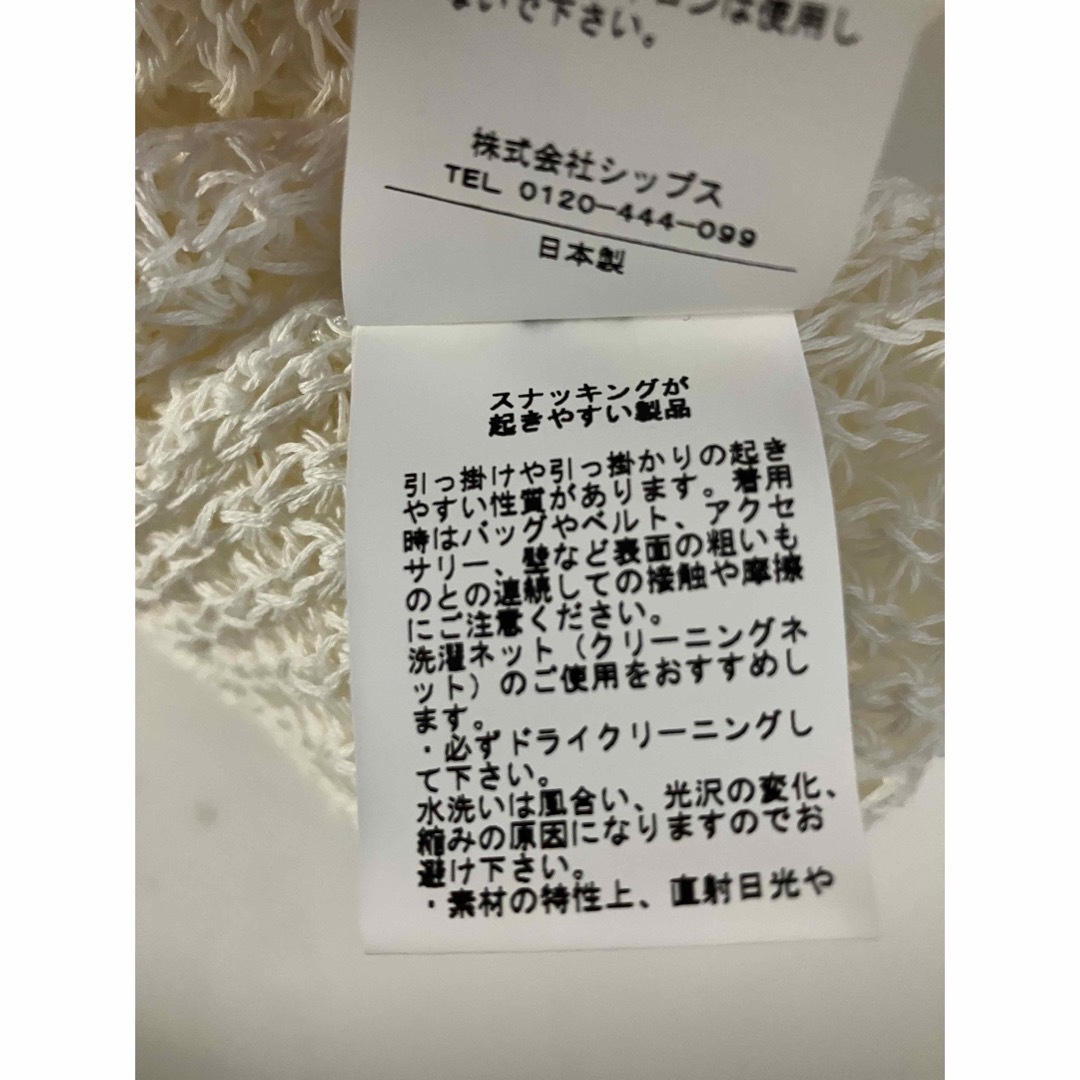 ンは使用し
ないで下さい。
株式会社シップス
TEL 0120-444-099
日本製
スナッキングが
起きやすい製品
引っ掛けや引っ掛かりの起き
やすい性質があります。着用
時はバッグやベルト、アクセ
サリー、壁など表面の粗いも
のとの連続しての接触や摩擦
にご注意ください。
洗濯ネット（クリーニングネ
ット）のご使用をおすすめし
ます。
・必ずドライクリーニングし
て下さい。
水洗いは風合い、光沢の変化、
縮みの原因になりますのでお
避け下さい。
・素材の特性上、直射日光や